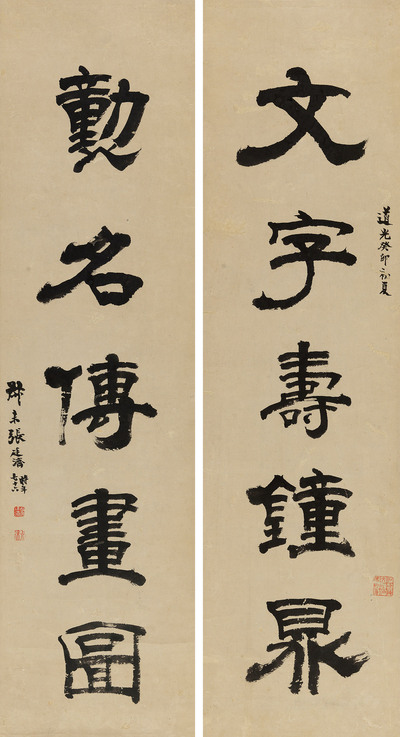 道光癸卯初夏
文字壽鐘鼎
勳名傳畫圖
叔未張廷濟時年七十六